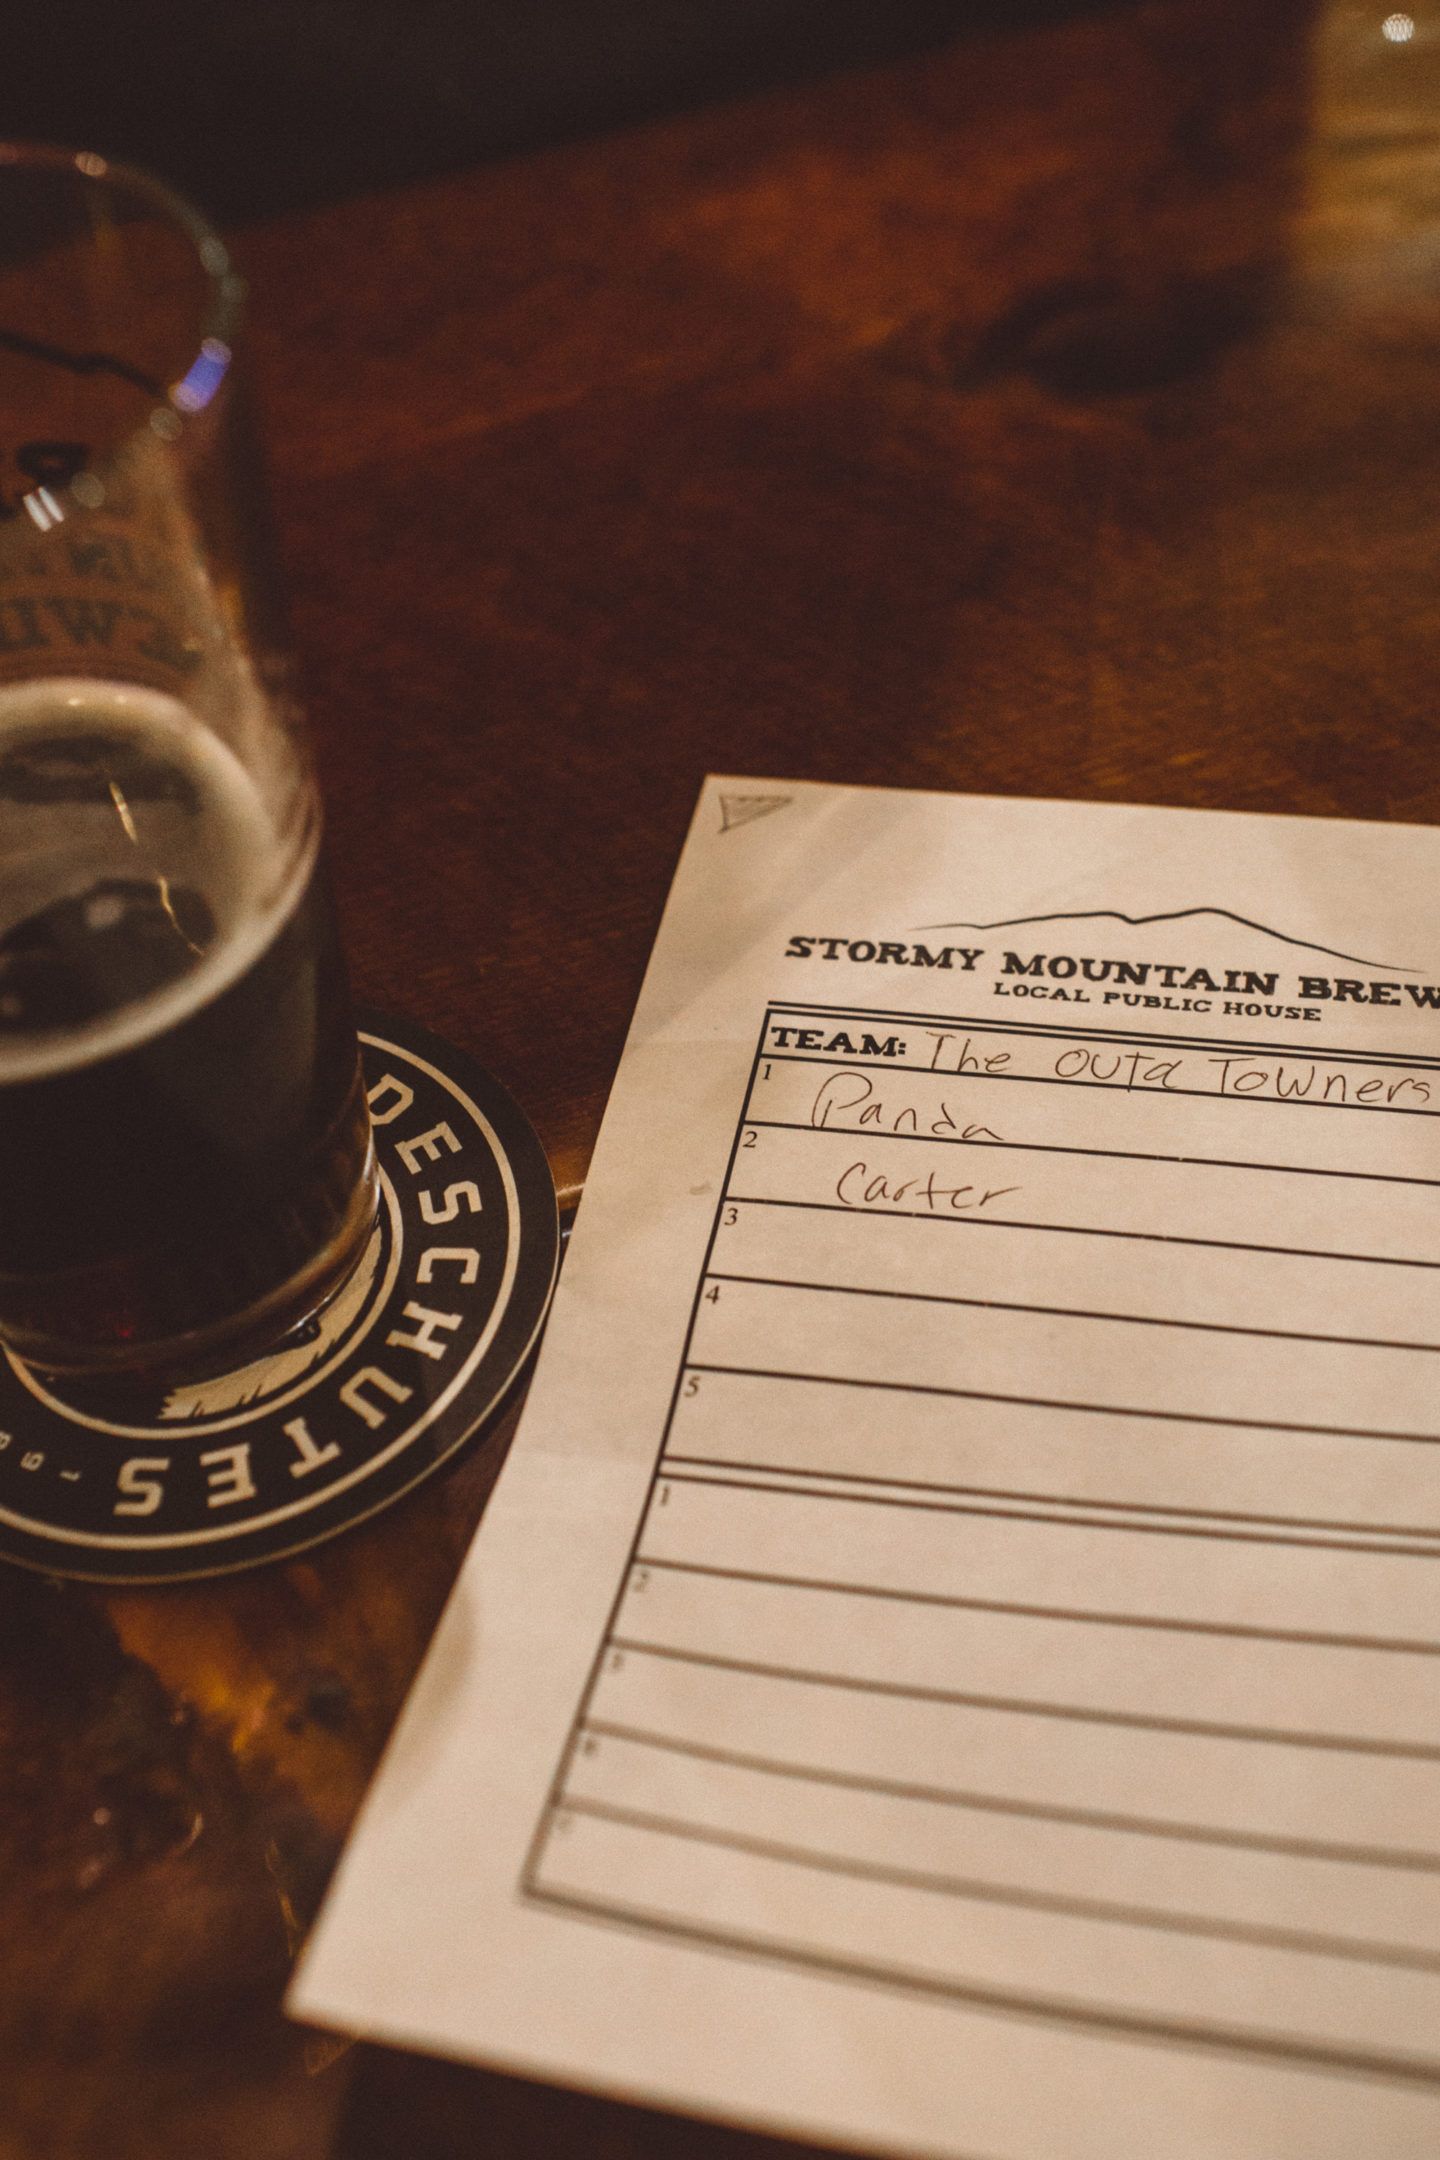 STORMY MOUNTAIN BREW
LOCAL PUBLIC HOUSE
TEAM: The Outa Towners
1 Panda
2 Carter
3
4
5
1
2
3
4
DESCHUTES